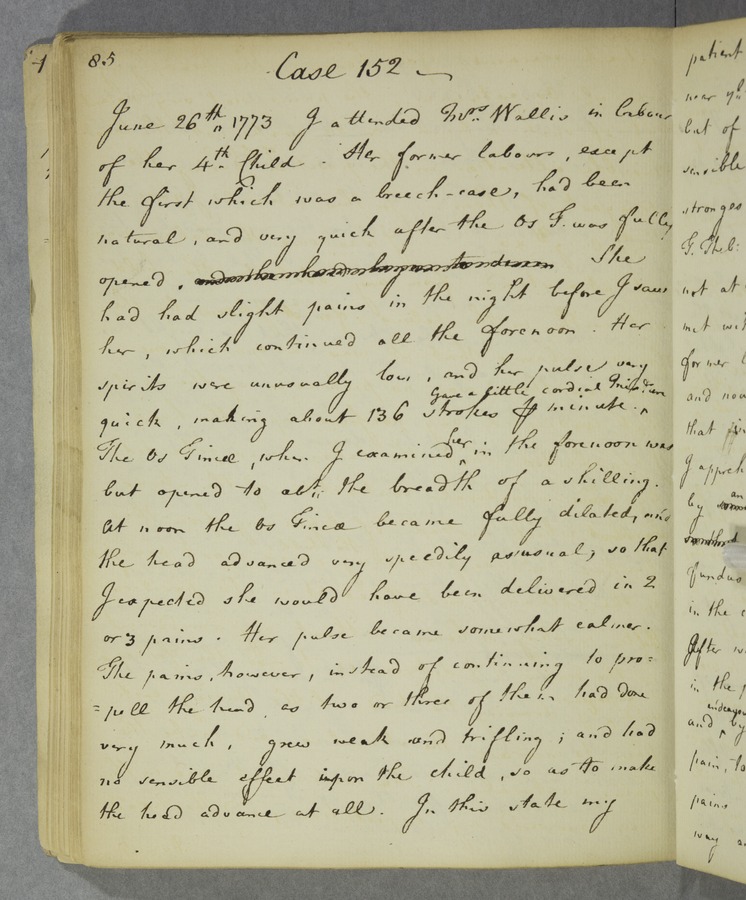 85
Case 152
June 26th 1773 I attended Mrs. Wallis in labour
of her 4th. Child. Her former labours, except
the first which was a breech-case, had been
natural, and very quick after the Os T. was fully
opened. She
had had slight pains in the night before I saw
her, which continued all the forenoon. Her
spirits were unusually low, and her pulse very
Gave a little cordial
quick, making about 136 strokes ⅌ minute. ‸
her
The Os Tincæ, when I examined ‸ in the forenoon was
but opened to abt. the breadth of a shilling.
At noon the Os Tincæ became fully dilated, and
the head advanced very speedily as usual; so that
I expected she would have been delivered in 2
or 3 pains. Her pulse became somewhat calmer.
The pains, however, instead of continuing to pro=
=pell the head, as two or three of them had done
very much, grew weak and trifling; and had
no sensible effect upon the child, so as to make
the head advance at all. In this state my
patient
near
but of
sensible
stronges
not at
met wit
former l
and now
that
I appreh
an
by
fundus
in the
After
in the
endeavou
and ‸ by
pain, to
pains
way